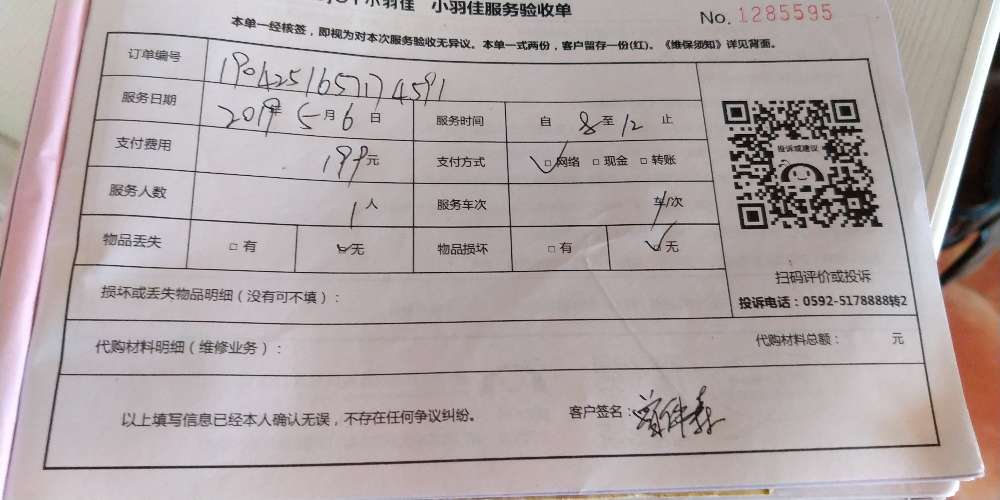 小羽佳 小羽佳服务验收单
No. 1285595
本单一经核签，即视为对本次服务验收无异议。本单一式两份，客户留存一份(红)。《维保须知》详见背面。
订单编号 1904251657174591
服务日期 2019年 5月 6日 服务时间 自 8 至 12 止
支付费用 199元 支付方式 □网络 □现金 □转账
服务人数 1人 服务车次 车/次
物品丢失 □有 □无 物品损坏 □有 □无
投诉或建议
扫码评价或投诉
投诉电话：0592-5178888转2
损坏或丢失物品明细（没有可不填）：
代购材料明细（维修业务）： 代购材料总额： 元
以上填写信息已经本人确认无误，不存在任何争议纠纷。 客户签名：